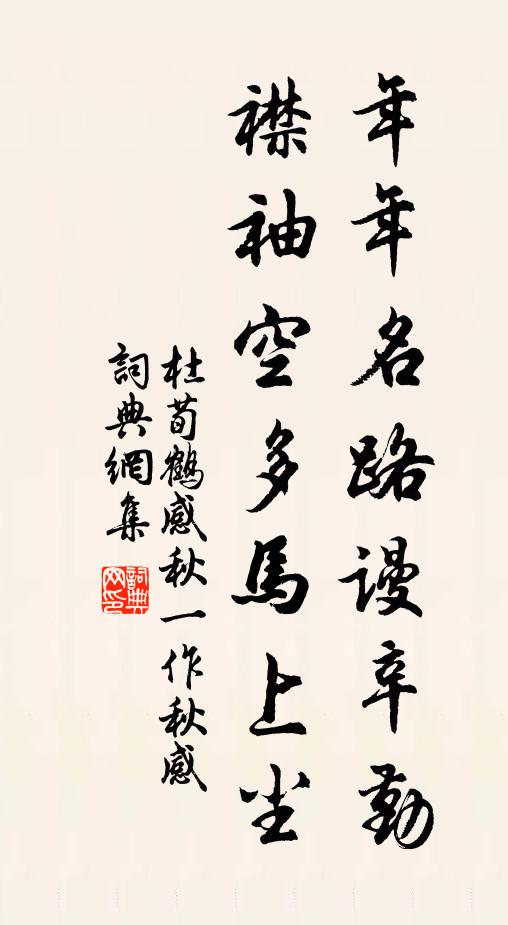 年年名路謾辛勤
襟袖空多馬上尘
杜荀鶴感秋一作秋感
詞典網集
詞典
网印